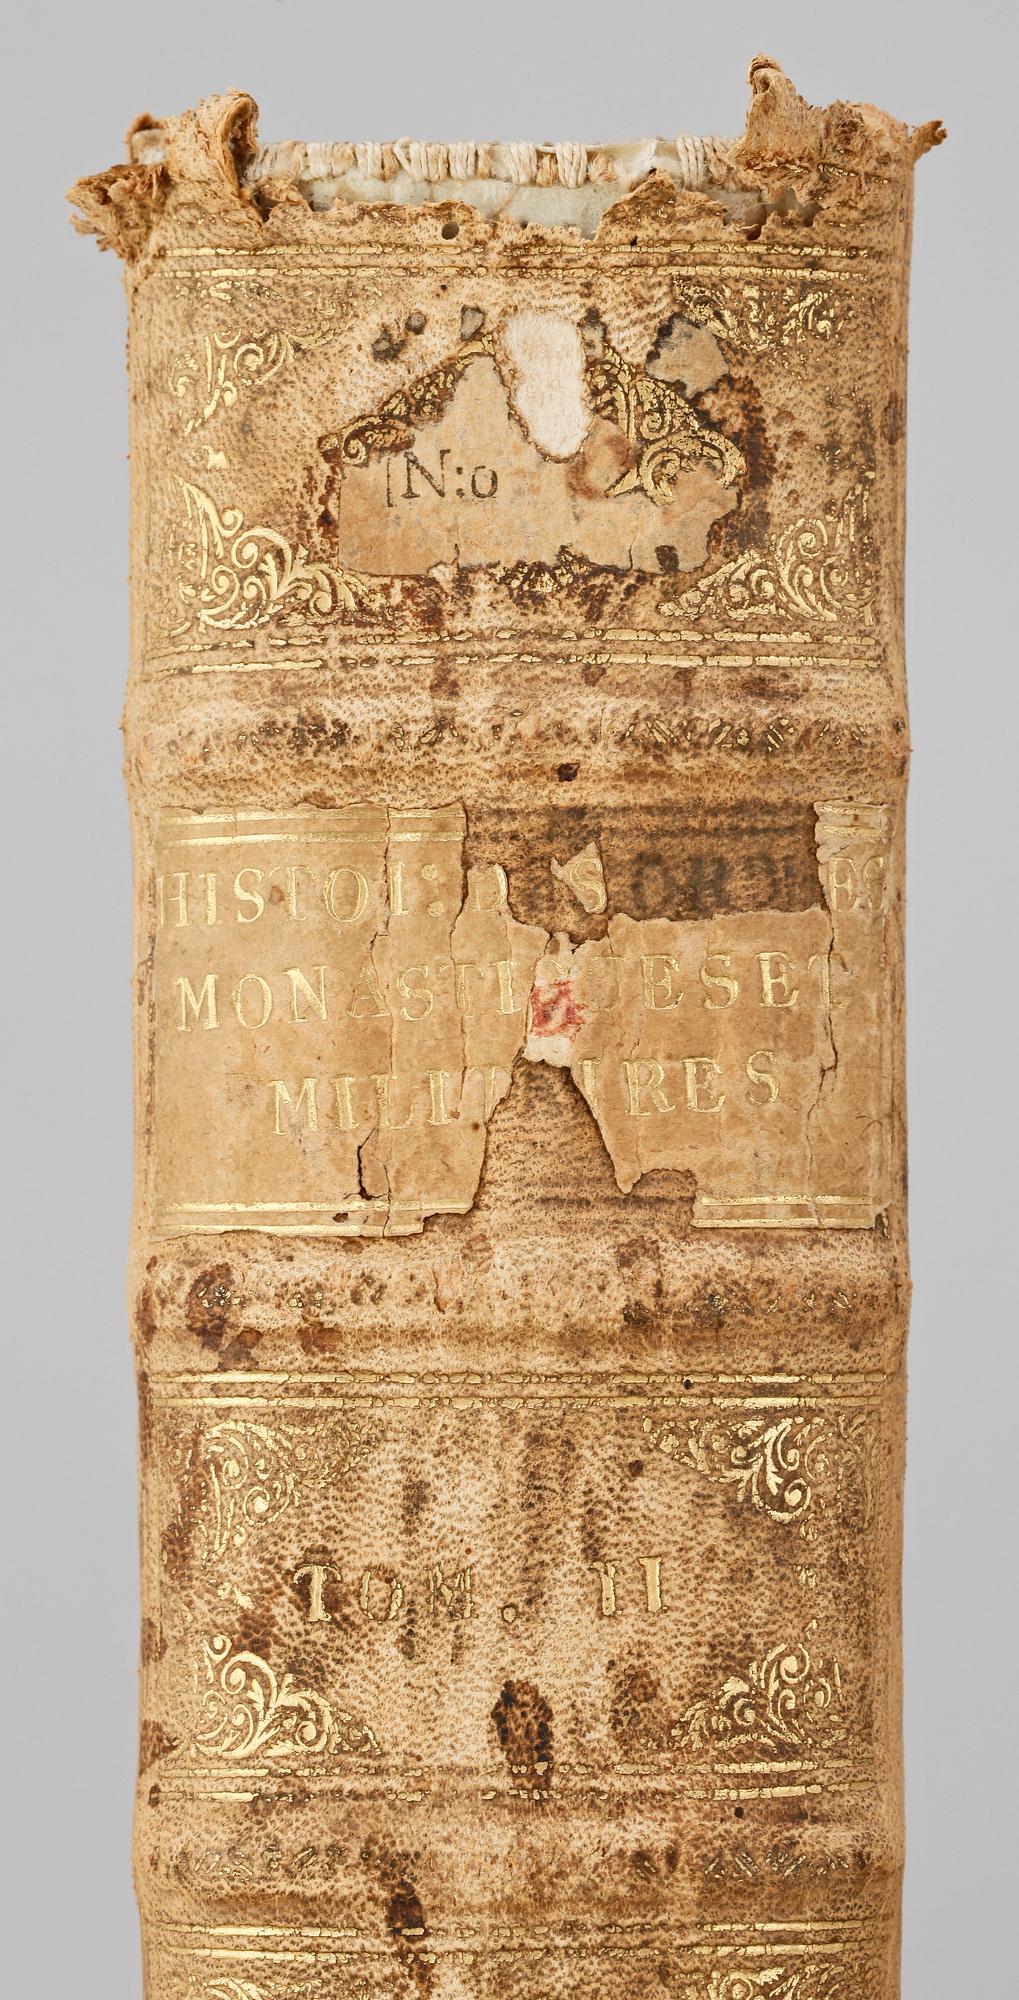 N:o
HISTOI: D S ORDRES
MONASTIQUES ET
MILITAIRES
TOM. II